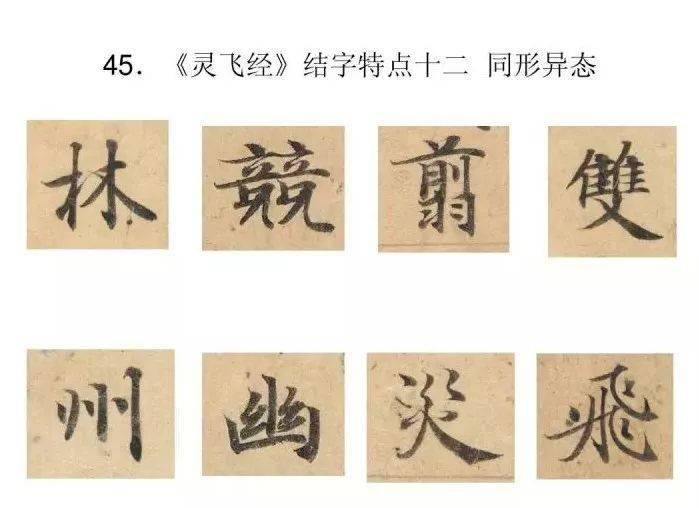 45. 《灵飞经》结字特点十二 同形异态
林 競 翦 雙
州 幽 災 飛